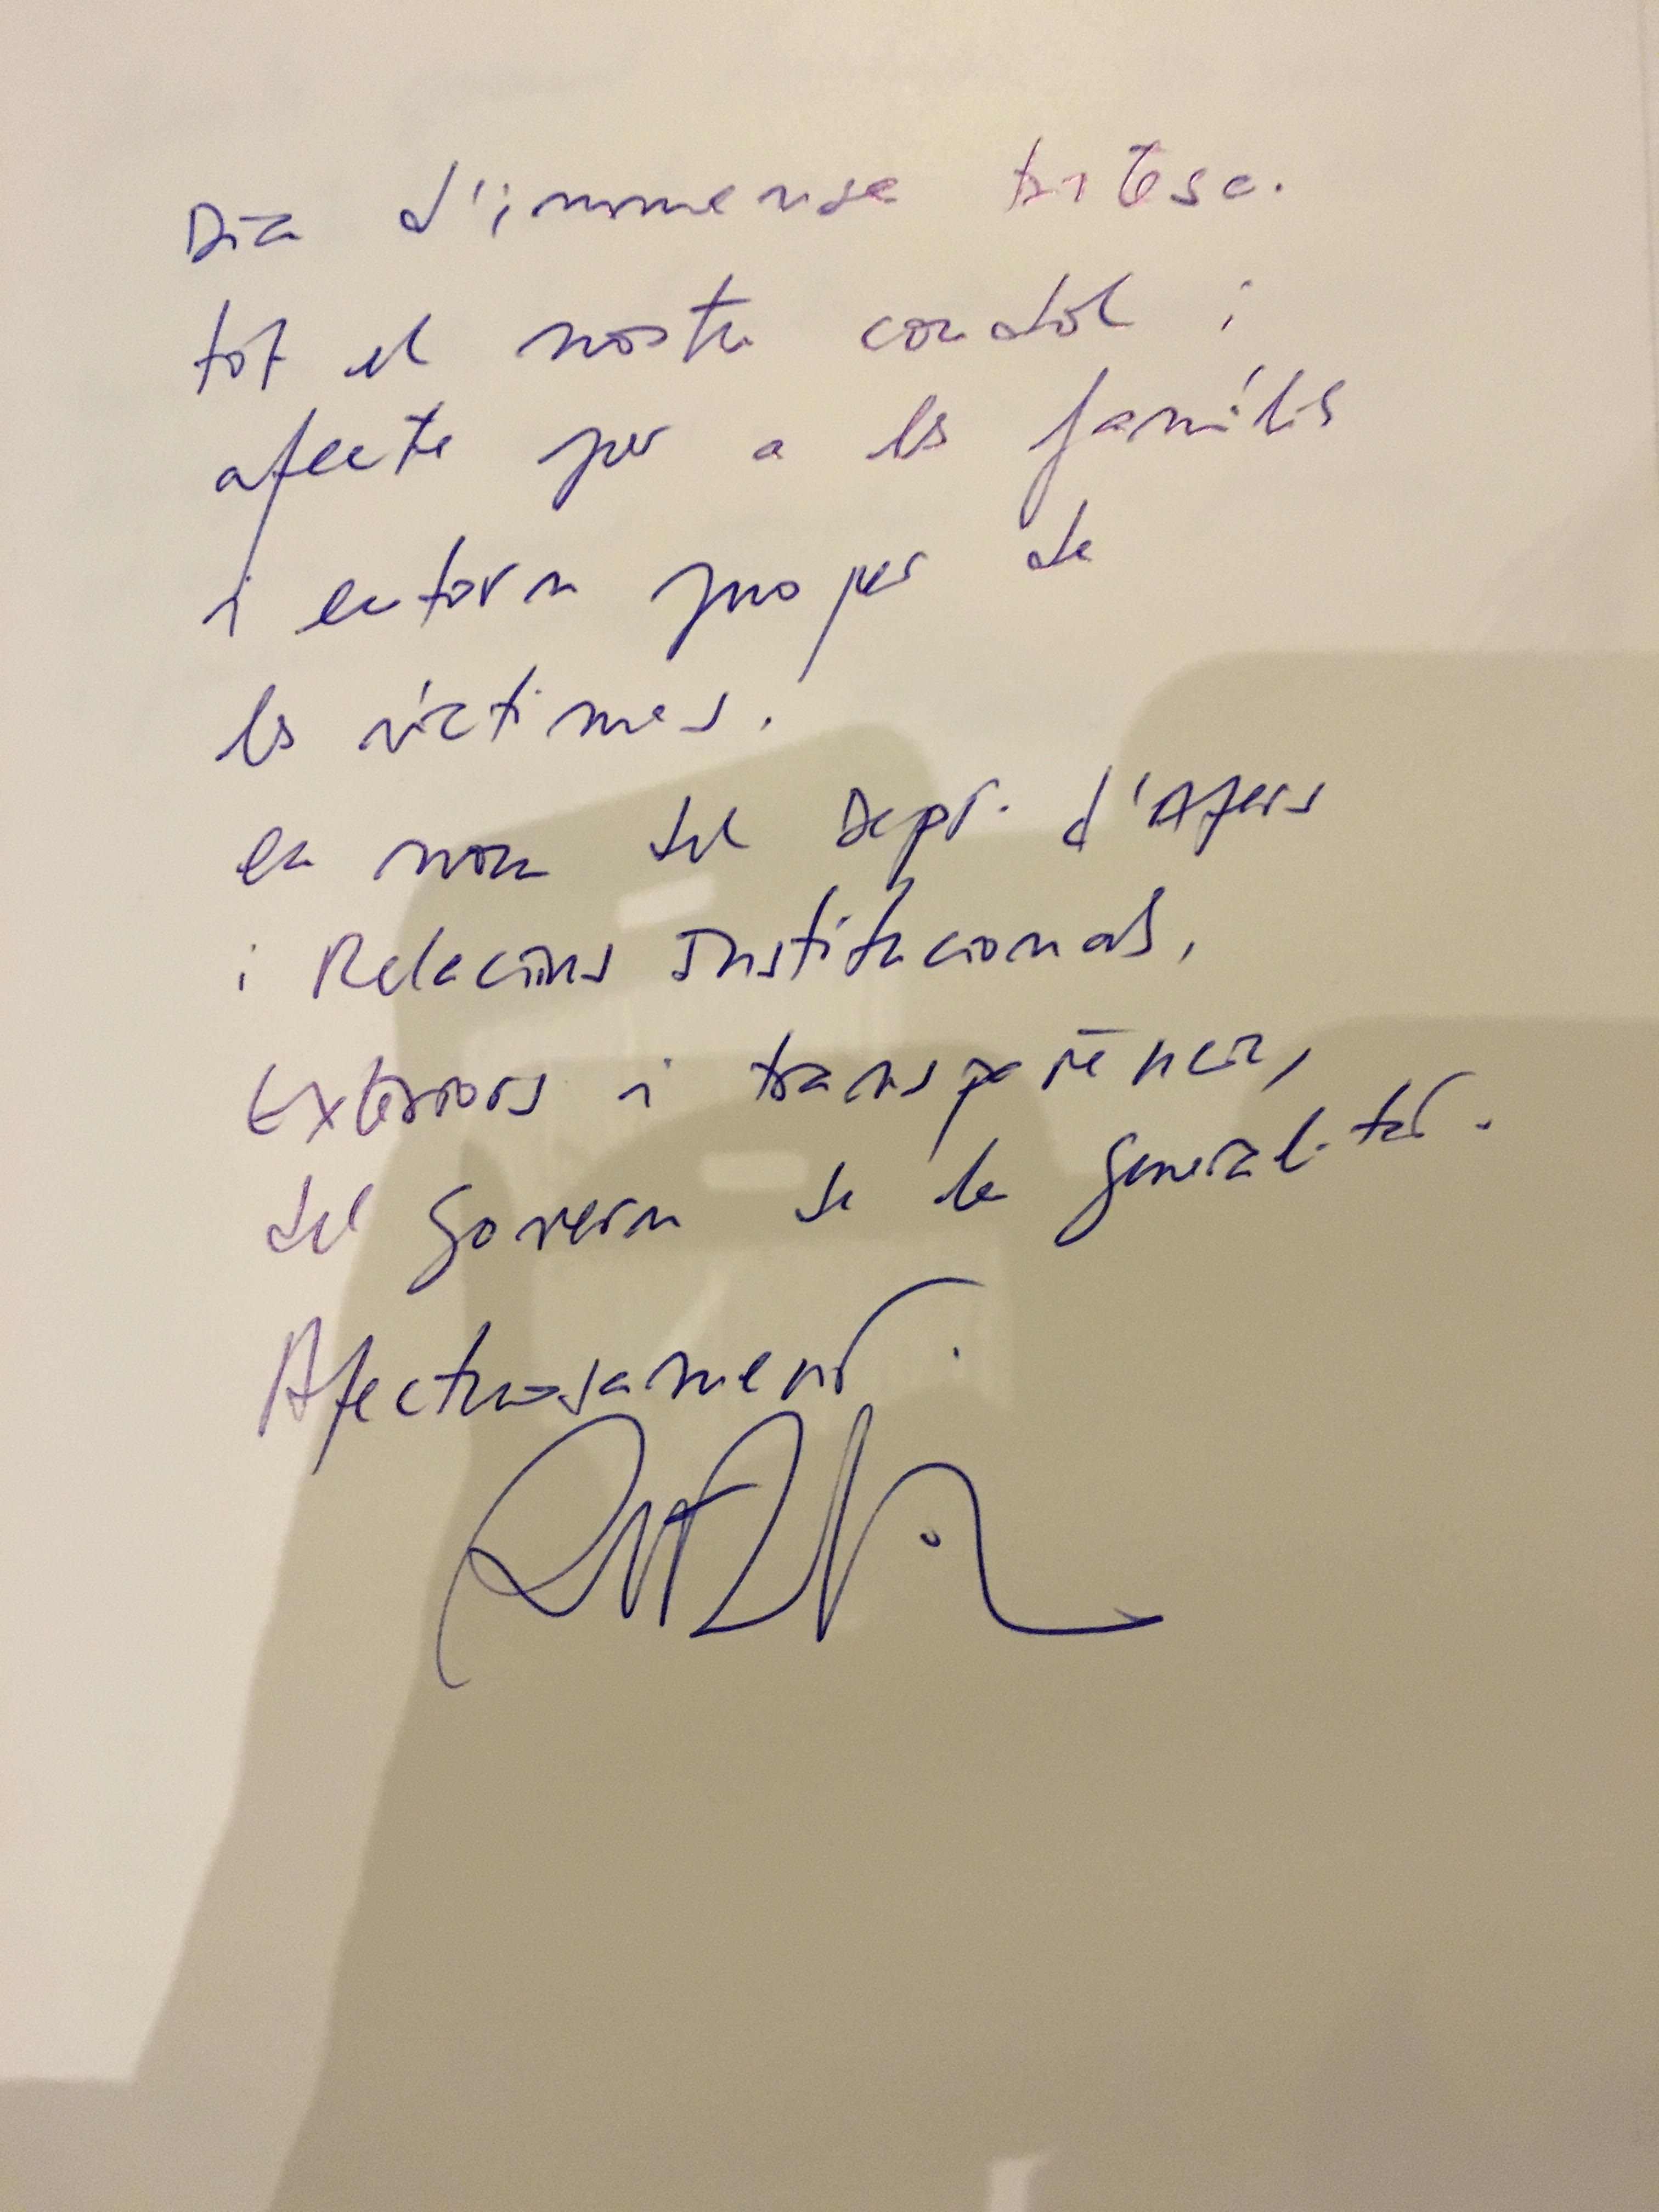 Dia d'immensa tristesa.
tot el nostre condol i
afecte per a les famílies
i entorn proper de
les víctimes.
en nom del Dept. d'Afers
i Relacions Institucionals,
Exteriors i transparència,
del Govern de la Generalitat.
Afectuosament.